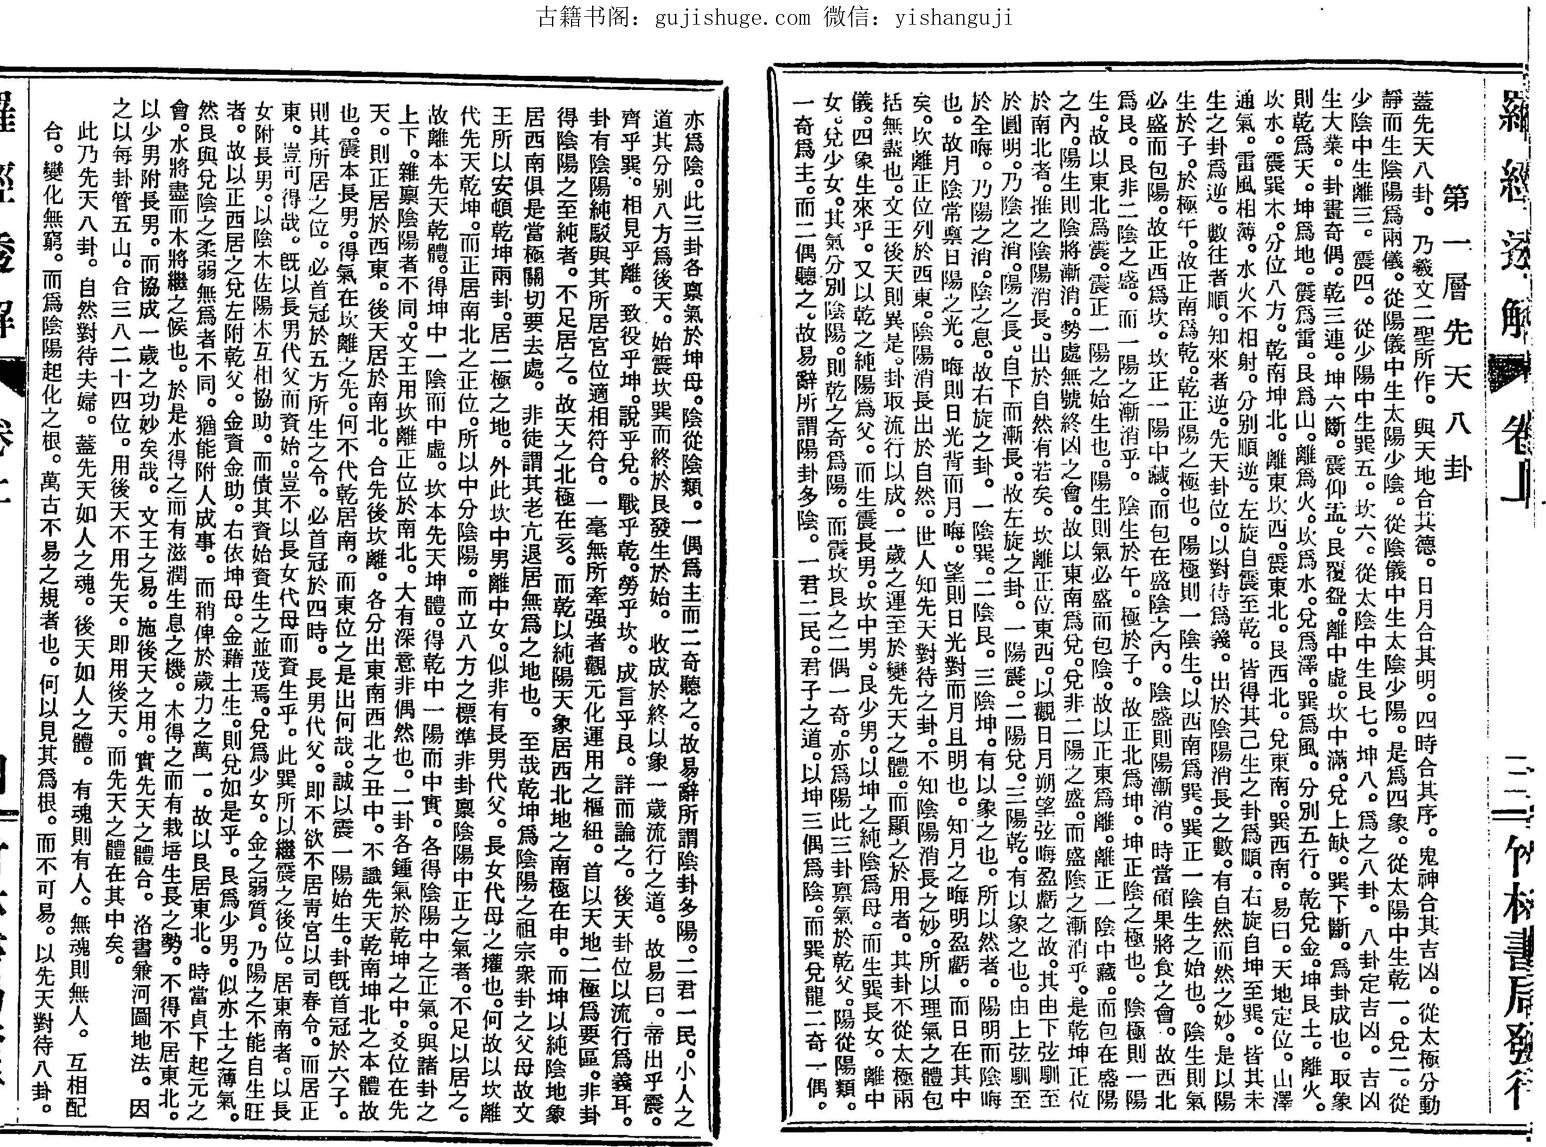 古籍书阁：gujishuge.com 微信：yishanguji
羅經透解 卷上 三 竹林書局發行
第一層先天八卦
蓋先天八卦。乃羲文二聖所作。與天地合其德。日月合其明。四時合其序。鬼神合其吉凶。從太極分動
靜而生陰陽爲兩儀。從陽儀中生太陽少陰。從陰儀中生太陰少陽。是爲四象。從太陽中生乾一。兌二。從
少陰中生離三。震四。從少陽中生巽五。坎六。從太陰中生艮七。坤八。爲之八卦。八卦定吉凶。吉凶
生大業。卦畫奇偶。乾三連。坤六斷。震仰盂。艮覆盌。離中虛。坎中滿。兌上缺。巽下斷。爲卦成也。取象
則乾爲天。坤爲地。震爲雷。艮爲山。離爲火。坎爲水。兌爲澤。巽爲風。分別五行。乾兌金。坤艮土。離火。
坎水。震巽木。分位八方。乾南坤北。離東坎西。震東北。艮西北。兌東南。巽西南。易曰。天地定位。山澤
通氣。雷風相薄。水火不相射。分別順逆。左旋自震至乾。皆得其己生之卦爲順。右旋自坤至巽。皆其未
生之卦爲逆。數往者順。知來者逆。先天卦位。以對待爲義。出於陰陽消長之數。有自然而然之妙。是以陽
生於子。於極午。故正南爲乾。乾正陽之極也。陽極則一陰生。以西南爲巽。巽正一陰生之始也。陰生則氣
必盛而包陽。故正西爲坎。坎正一陽中藏。而包在盛陰之內。陰盛則陽漸消。時當碩果將食之會。故西北
爲艮。艮非二陰之盛。而一陽之漸消乎。陰生於午。極於子。故正北爲坤。坤正陰之極也。陰極則一陽
生。故以東北爲震。震正一陽之始生也。陽生則氣必盛而包陰。故以正東爲離。離正一陰中藏。而包在盛陽
之內。陽生則陰將漸消。勢處無號終凶之會。故以東南爲兌。兌非二陽之盛。而盛陰之漸消乎。是乾坤正位
於南北者。推之陰陽消長。出於自然有若矣。坎離正位東西。以觀日月朔望弦晦盈虧之故。其由下弦馴至
於圓明。乃陰之消。陽之長。自下而漸長。故左旋之卦。一陽震。二陽兌。三陽乾。有以象之也。由上弦馴至
於全晦。乃陽之消。陰之息。故右旋之卦。一陰巽。二陰艮。三陰坤。有以象之也。所以然者。陽明而陰晦
也。故月陰常禀日陽之光。晦則日光背而月晦。望則日光對而月且明也。知月之晦明盈虧。而日在其中
矣。坎離正位列於西東。陰陽消長出於自然。世人知先天對待之卦。不知陰陽消長之妙。所以理氣之體包
括無盡也。文王後天則異是。卦取流行以成。一歲之運至於變先天之體。而顯之於用者。其卦不從太極兩
儀。四象生來乎。又以乾之純陽爲父。而生震長男。坎中男。艮少男。以坤之純陰爲母。而生巽長女。離中
女。兌少女。其氣分別陰陽。則乾之奇爲陽。而震坎艮之二偶一奇。亦爲陽此三卦禀氣於乾父。陽從陽類。
一奇爲主。而二偶聽之。故易辭所謂陽卦多陰。一君二民。君子之道。以坤三偶爲陰。而巽兌離二奇一偶。
亦爲陰。此三卦各禀氣於坤母。陰從陰類。一偶爲主而二奇聽之。故易辭所謂陰卦多陽。二君一民。小人之
道其分別八方爲後天。始震坎巽而終於艮發生於始。收成於終以象一歲流行之道。故易曰。帝出乎震。
齊乎巽。相見乎離。致役乎坤。說乎兌。戰乎乾。勞乎坎。成言乎艮。詳而論之。後天卦位以流行爲義耳。
卦有陰陽純駁與其所居宮位適相符合。一毫無所牽强者觀元化運用之樞紐。首以天地二極爲要區。非卦
得陰陽之至純者。不足居之。故天之北極在亥。而乾以純陽天象居西北地之南極在申。而坤以純陰地象
居西南俱是當極關切要去處。非徒謂其老亢退居無爲之地也。至哉乾坤爲陰陽之祖宗衆卦之父母故文
王所以安頓乾坤兩卦。居二極之地。外此坎中男離中女。似非有長男代父。長女代母之權也。何故以坎離
代先天乾坤。而正居南北之正位。所以中分陰陽。而立八方之標準非卦禀陰陽中正之氣者。不足以居之。
故離本先天乾體。得坤中一陰而中虛。坎本先天坤體。得乾中一陽而中實。各得陰陽中之正氣。與諸卦之
上下。雜禀陰陽者不同。文王用坎離正位於南北。大有深意非偶然也。二卦各鍾氣於乾坤之中。爻位在先
天。則正居於西東。後天居於南北。合先後坎離。各分出東南西北之丑中。不識先天乾南坤北之本體故
也。震本長男。得氣在坎離之先。何不代乾居南。而東位之是出何哉。誠以震一陽始生。卦旣首冠於六子。
則其所居之位。必首冠於五方所生之令。必首冠於四時。長男代父。即不欲不居靑宮以司春令。而居正
東。豈可得哉。旣以長男代父而資始。豈不以長女代母而資生乎。此巽所以繼震之後位。居東南者。以長
女附長男。以陰木佐陽木互相協助。而債其資始資生之並茂焉。兌爲少女。金之弱質。乃陽之不能自生旺
者。故以正西居之兌左附乾父。金資金助。右依坤母。金藉土生。則兌如是乎。艮爲少男。似亦土之薄氣。
然艮與兌陰之柔弱無爲者不同。猶能附人成事。而稍俾於歲力之萬一。故以艮居東北。時當貞下起元之
會。水將盡而木將繼之候也。於是水得之而有滋潤生息之機。木得之而有栽培生長之勢。不得不居東北。
以少男附長男。而協成一歲之功妙矣哉。文王之易。施後天之用。實先天之體合。洛書兼河圖地法。因
之以每卦管五山。合三八二十四位。用後天不用先天。即用後天。而先天之體在其中矣。
此乃先天八卦。自然對待夫婦。蓋先天如人之魂。後天如人之體。有魂則有人。無魂則無人。互相配
合。變化無窮。而爲陰陽起化之根。萬古不易之規者也。何以見其爲根。而不可易。以先天對待八卦。
羅經透解 卷上